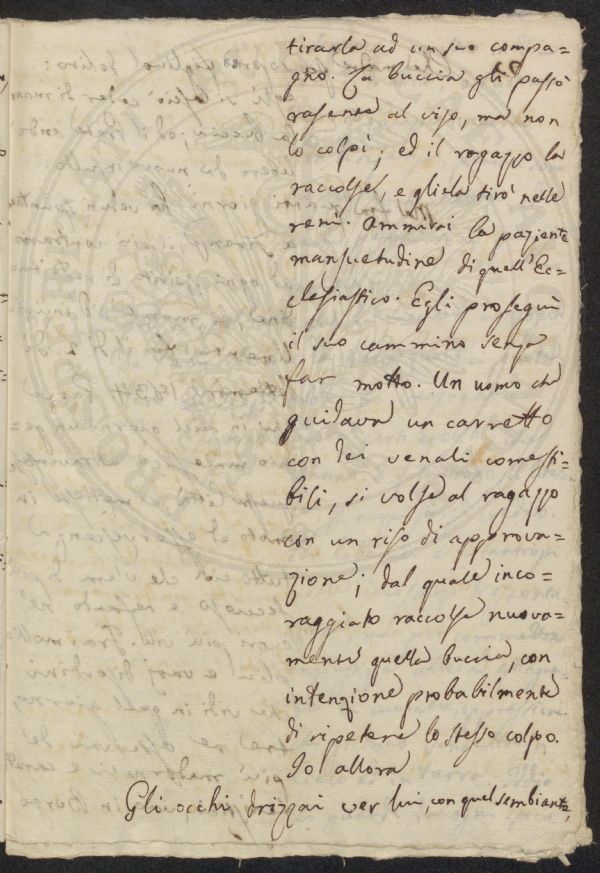 tirarla ad un suo compa=
gno. La buccia gli passò
rasente al viso, ma non
lo colpì; ed il ragazzo la
raccolse, e gliela tirò nelle
reni. Ammirai la paziente
mansuetudine di quell'Ec=
clesiastico. Egli proseguì
il suo cammino senza
far motto. Un uomo che
guidava un carretto
con dei venali comesti=
bili, si volse al ragazzo
con un riso di approva=
zione; dal quale inco=
raggiato raccolse nuova=
mente quella buccia, con
intenzione probabilmente
di ripetere lo stesso colpo.
Io allora
Gli occhi drizzai ver lui, con quel sembiante,